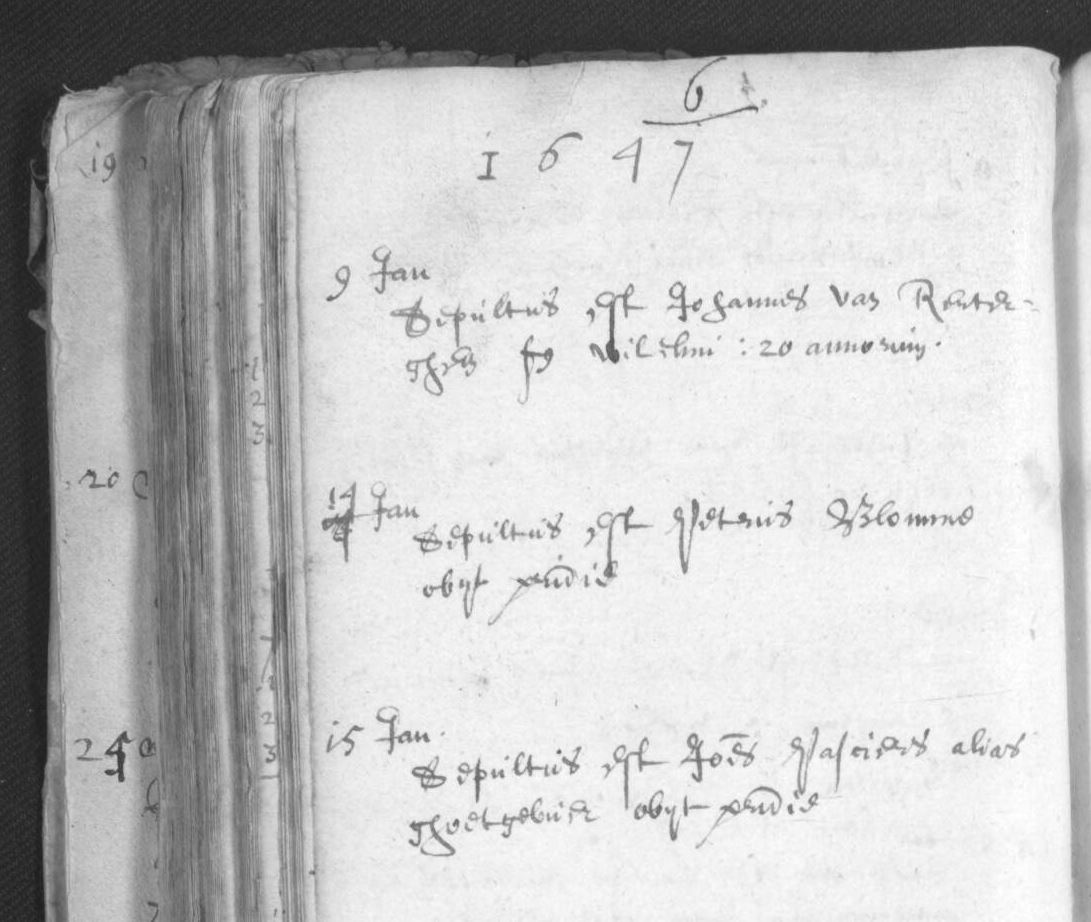 6
1647
9 Jan
Sepultus est Johannes van Renter-
ghem fs wilelmi : 20 annorum.
14 Jan
Sepultus est Petrus Blomme
obijt pridie
15 Jan.
Sepultus est Joes Pasciers alias
ghoetgebuer obijt pridie
19
20
24
1
2
3
2
3